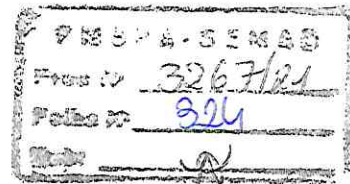 PMSPA-SEMAD
Proc Nº 3267/21
Folha Nº 324